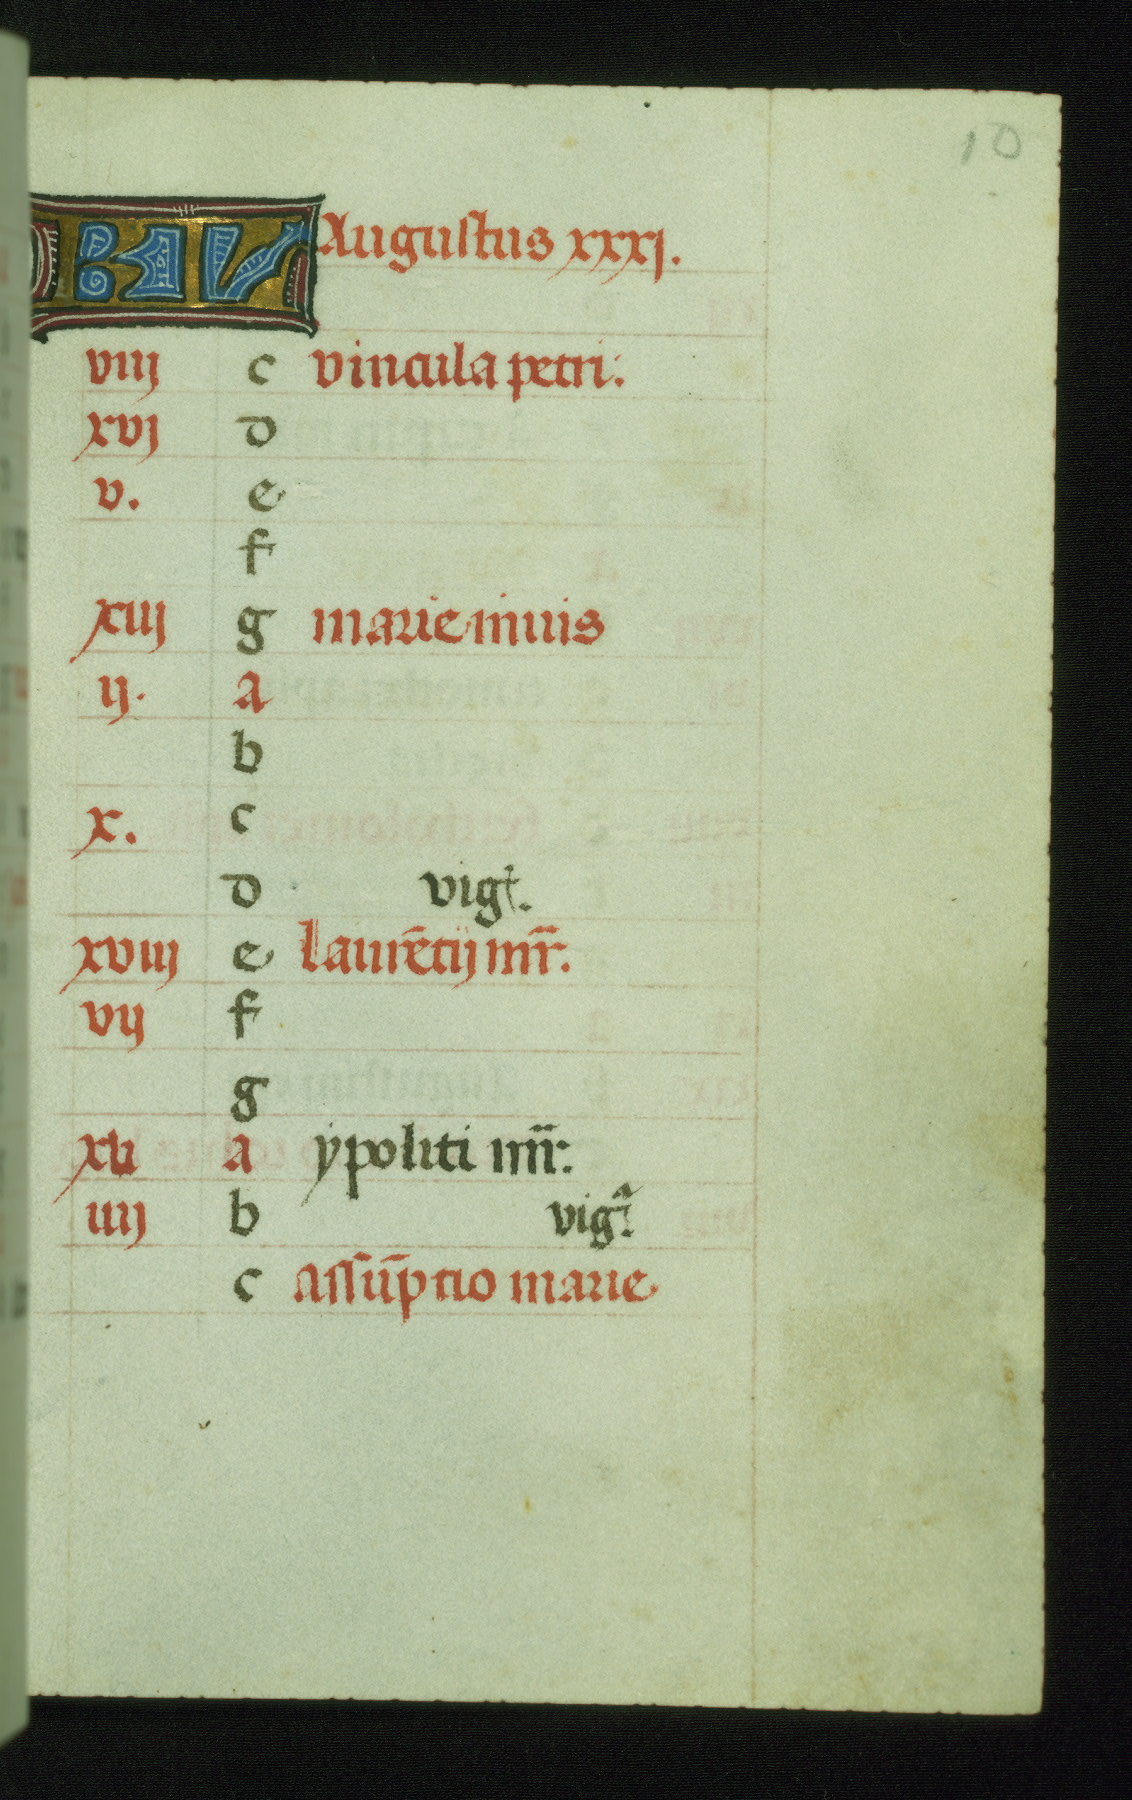 10
KL Augustus xxxj.
viij c vincula petri.
xvj d
v. e
f
xiij g marie niuis
ij. a
b
x. c
d vigᷓ.
xviij e laurētij mr̄.
vij f
g
xv a ypoliti mr̄.
iiij b vigᷓ
c assūptio marie